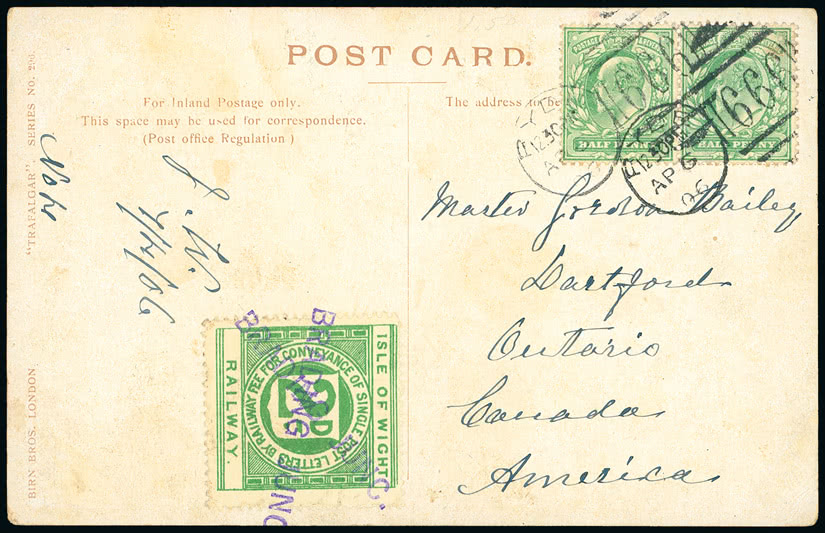 POST CARD.
For Inland Postage only.
This space may be used for correspondence.
(Post office Regulation)
The address to be
"TRAFALGAR", SERIES No.
BIRN BROS. LONDON.
No 4
J. W.
4/06
POSTAGE
HALF PENNY
HALF PENNY
RYDE
12.30PM
AP 6
06
Master Gordon Bailey
Dartford
Ontario
Canada
America
ISLE OF WIGHT
RAILWAY.
FEE FOR CONVEYANCE OF SINGLE
POST LETTERS BY RAILWAY
2D
BRADING JUNC.
BRADING JUNC